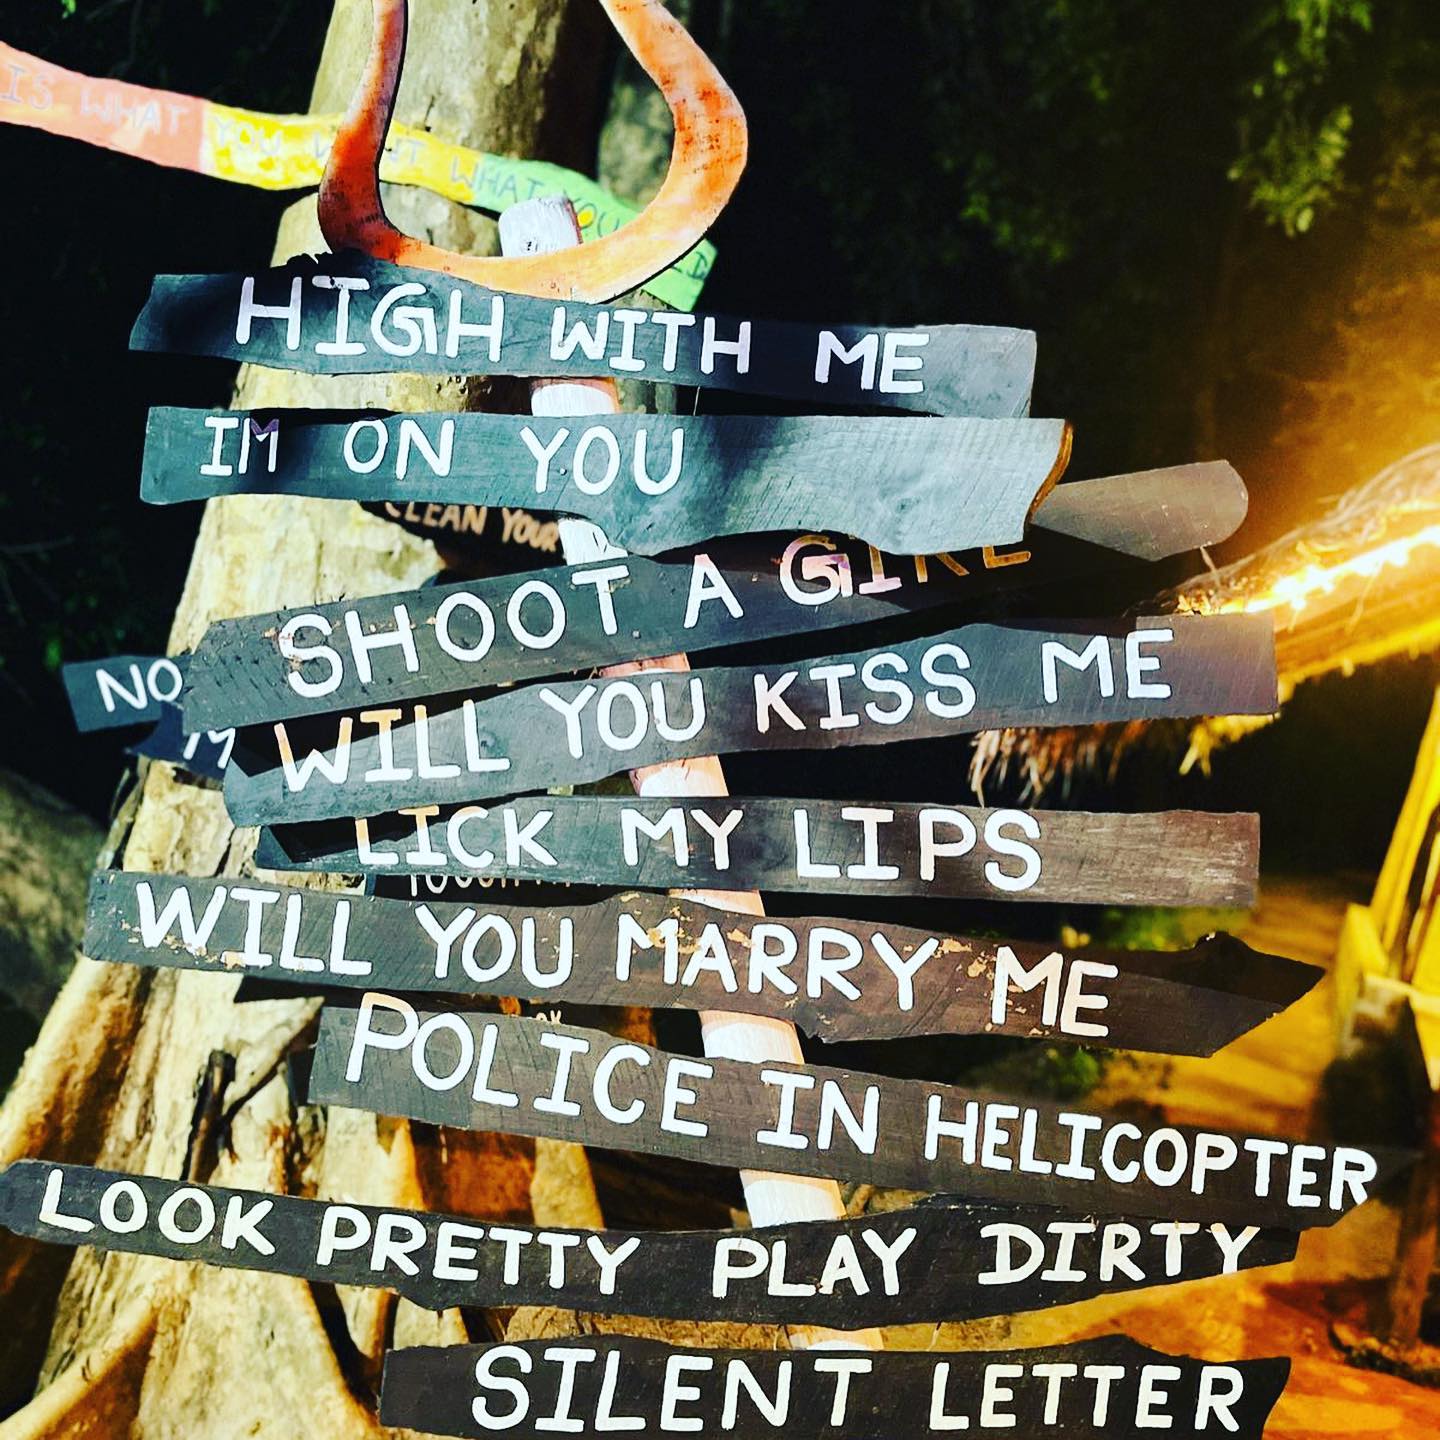 IS WHAT YOU WANT WHAT YOU
HIGH WITH ME
IM ON YOU
CLEAN YOUR
SHOOT A GIRL
NO
WILL YOU KISS ME
LICK MY LIPS
WILL YOU MARRY ME
POLICE IN HELICOPTER
LOOK PRETTY PLAY DIRTY
SILENT LETTER